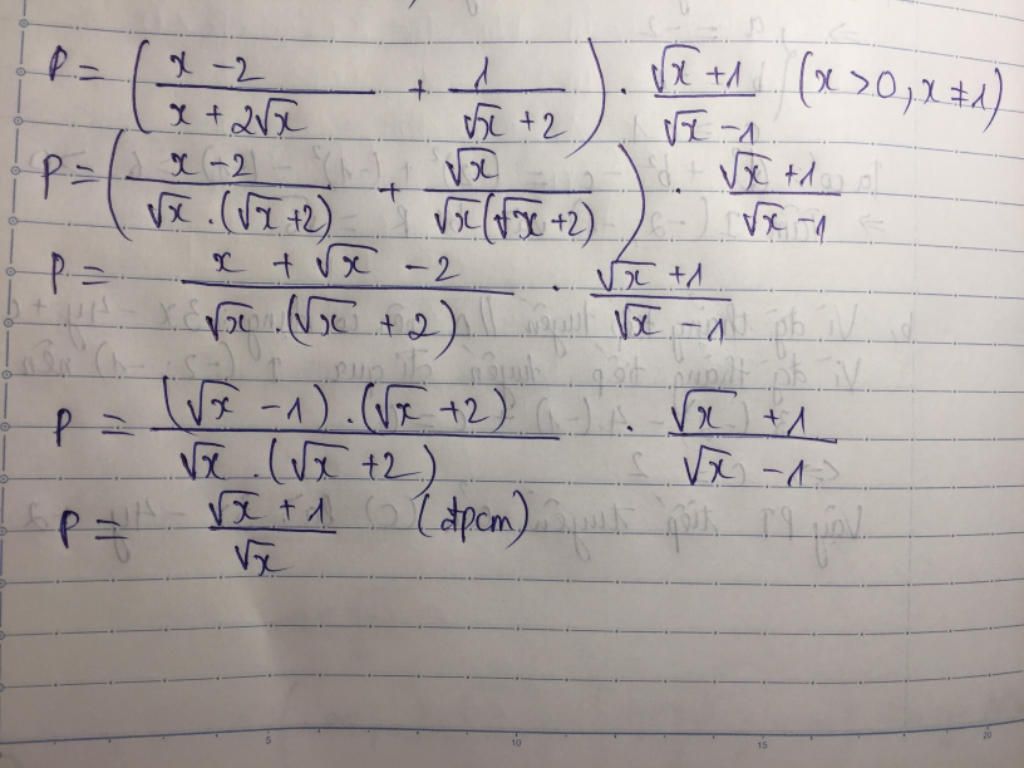 P = ( (x - 2)/(x + 2√x) + 1/(√x + 2) ) . (√x + 1)/(√x - 1) (x > 0, x ≠ 1)
P = ( (x - 2)/(√x . (√x + 2)) + √x/(√x(√x + 2)) ) . (√x + 1)/(√x - 1)
P = (x + √x - 2)/(√x . (√x + 2)) . (√x + 1)/(√x - 1)
P = ((√x - 1) . (√x + 2))/(√x . (√x + 2)) . (√x + 1)/(√x - 1)
P = (√x + 1)/√x (đpcm)
5 10 15 20